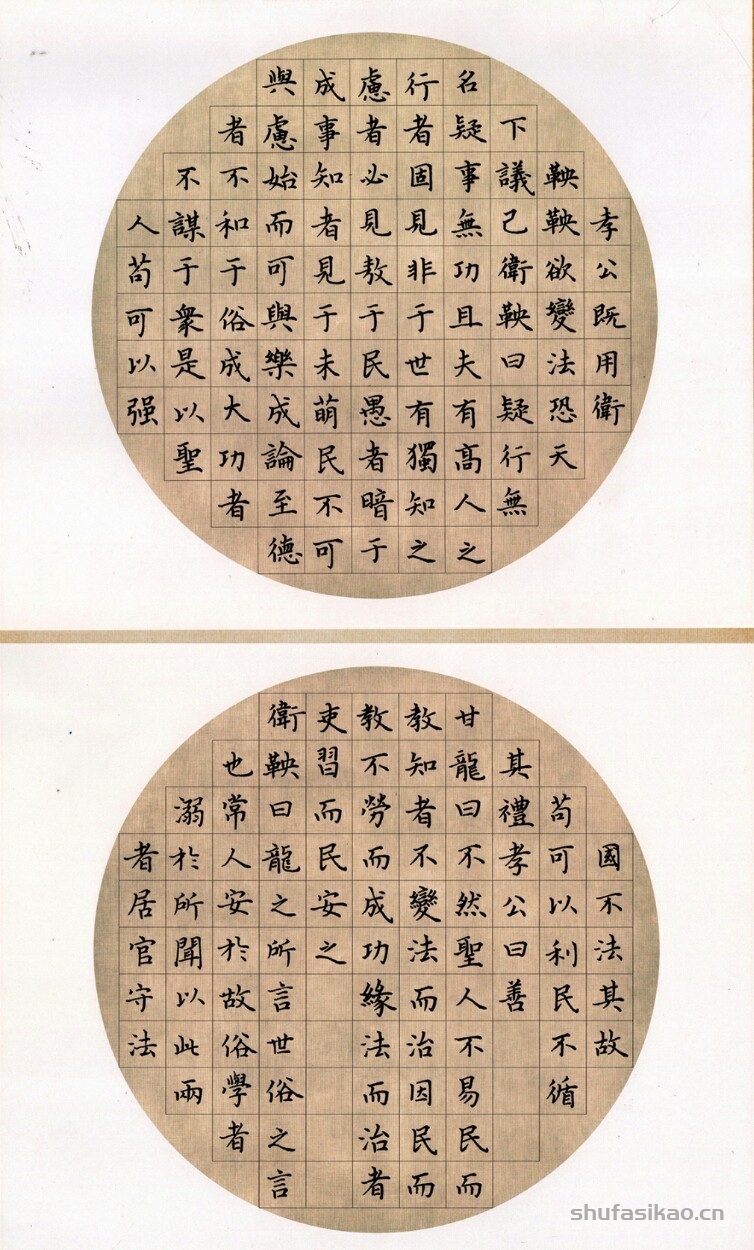 孝公既用衛
鞅鞅欲變法恐天
下議己衛鞅曰疑行無
名疑事無功且夫有高人之
行者固見非于世有獨知之
慮者必見敖于民愚者暗于
成事知者見于未萌民不可
與慮始而可與樂成論至德
者不和于俗成大功者
不謀于衆是以聖
人苟可以强
國不法其故
苟可以利民不循
其禮孝公曰善
甘龍曰不然聖人不易民而
教知者不變法而治因民而
教不勞而成功緣法而治者
吏習而民安之
衛鞅曰龍之所言世俗之言
也常人安於故俗學者
溺於所聞以此兩
者居官守法
shufasikao.cn